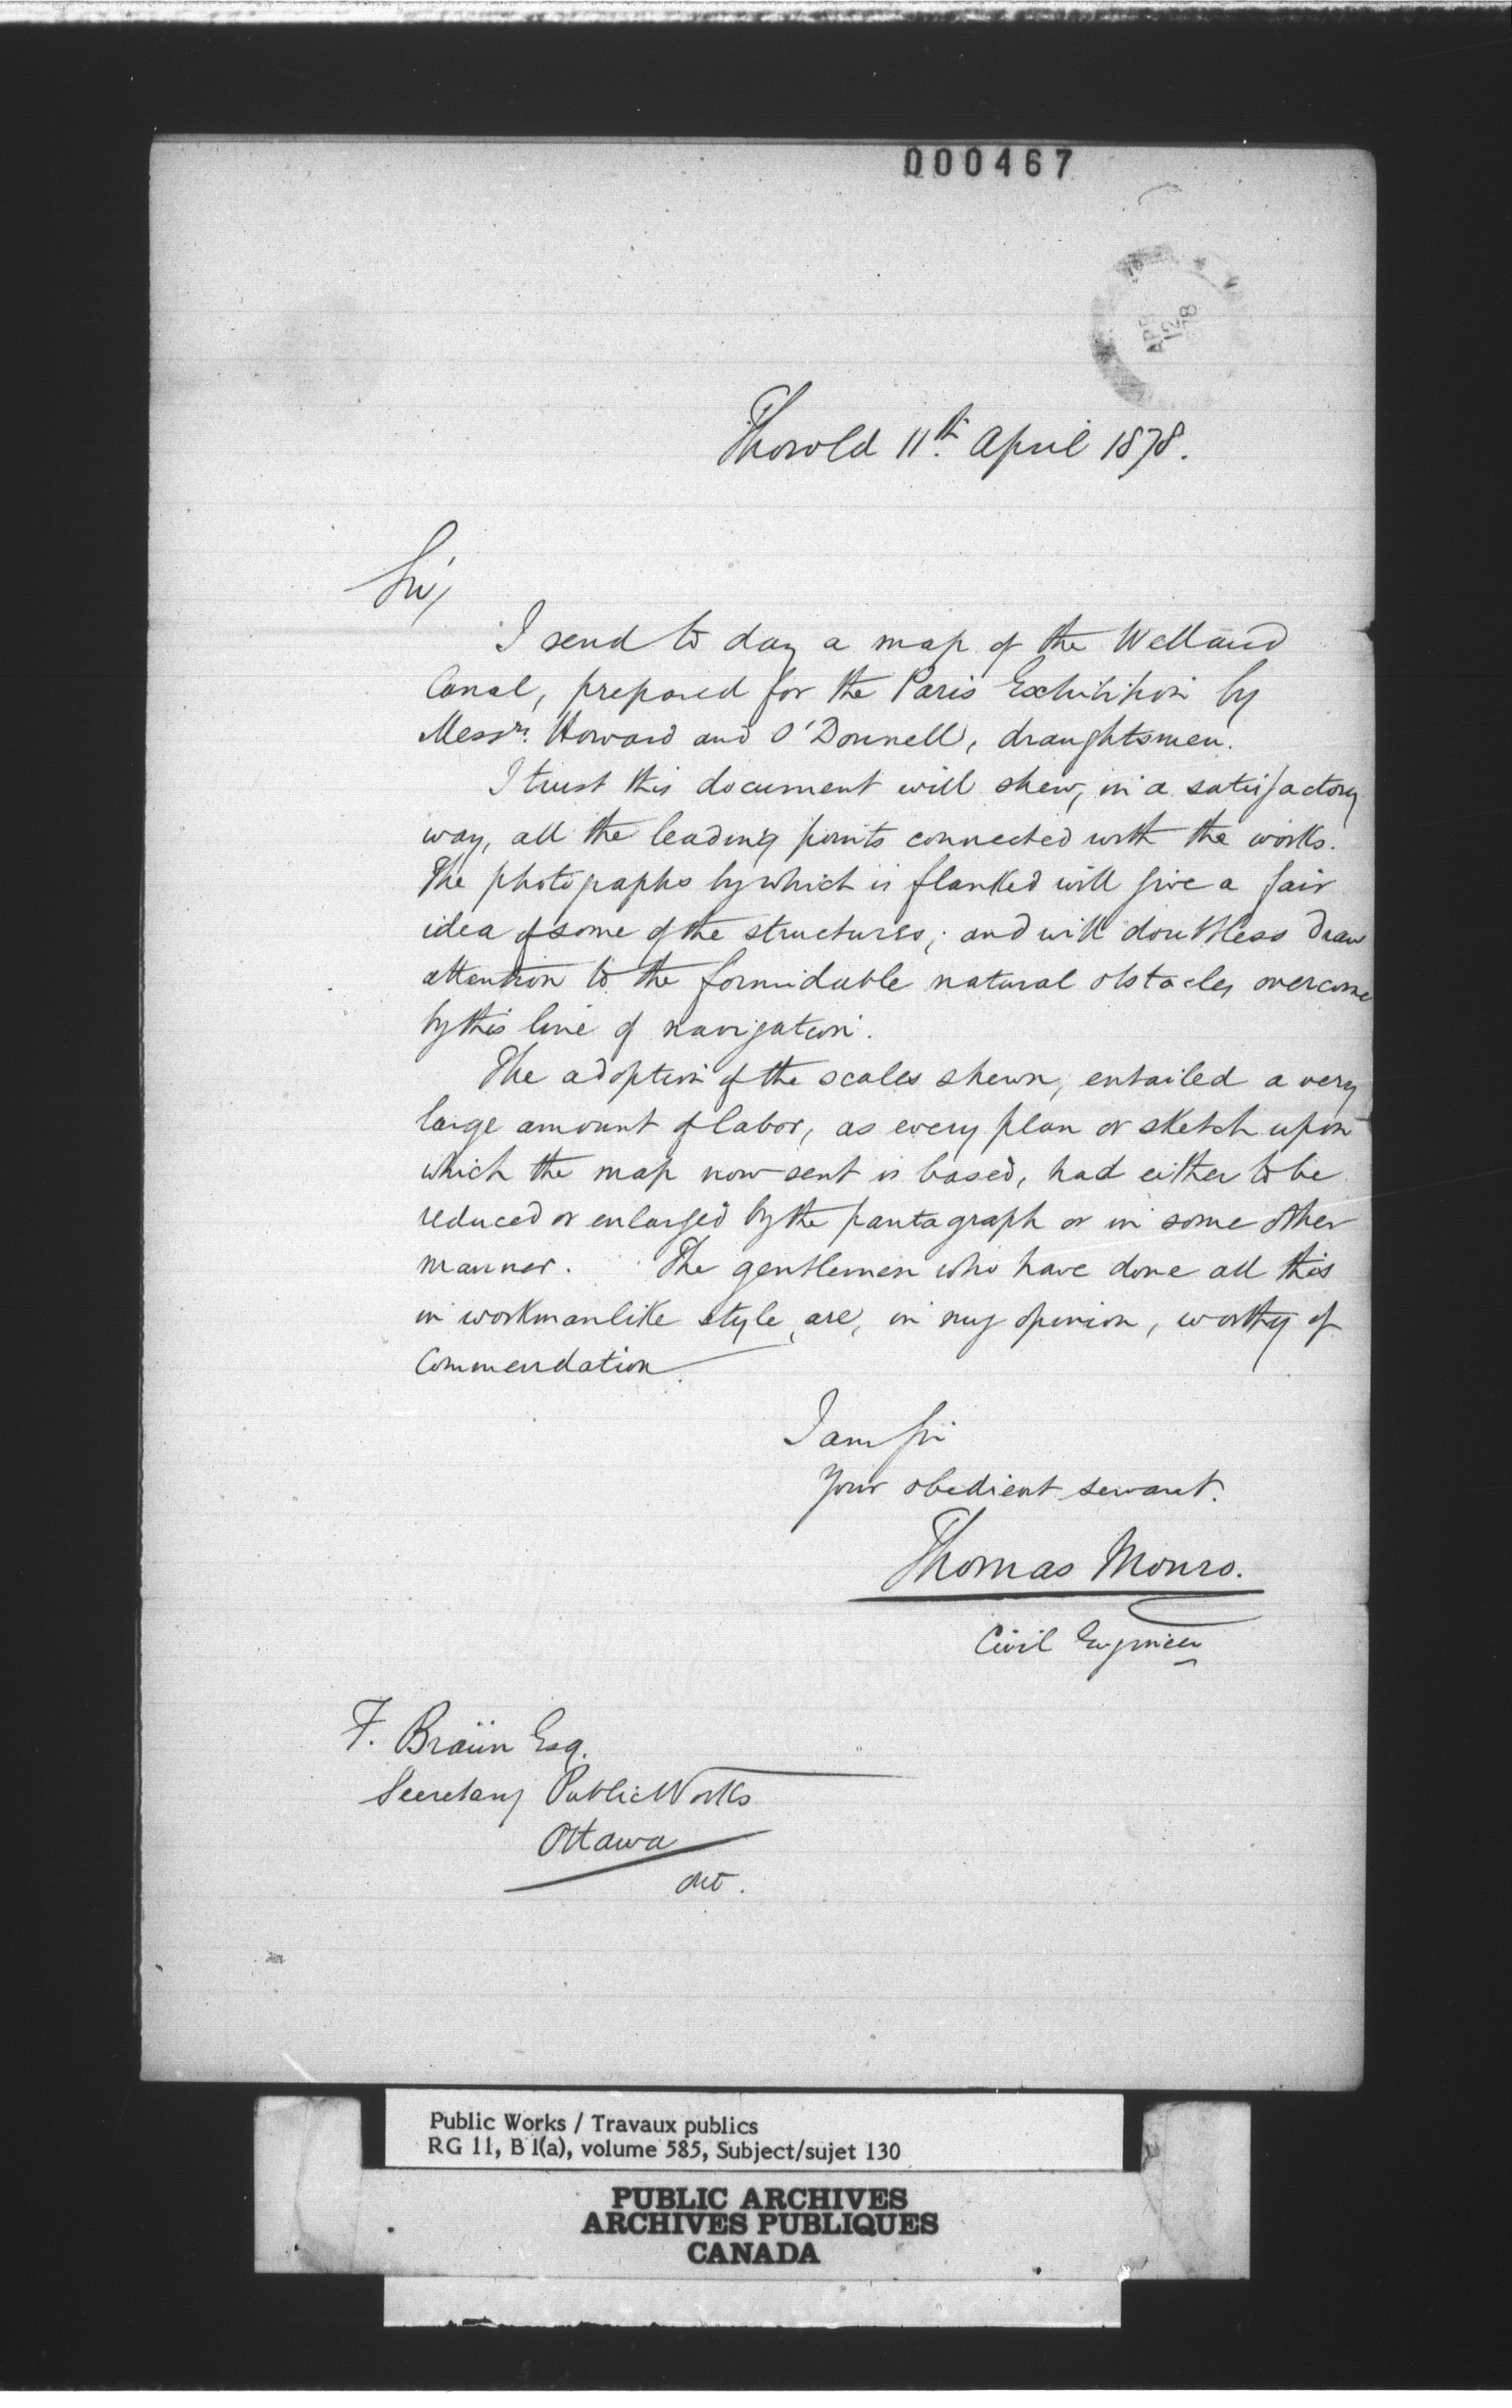 000467
APR 12 78
Thorold 11th April 1878.
Sir,
I send to day a map of the Welland
Canal, prepared for the Paris Exhibition by
Messrs. Howard and O'Donnell, draughtsmen.
I trust this document will shew, in a satisfactory
way, all the leading points connected with the works.
The photographs by which is flanked will give a fair
idea of some of the structures; and will doubtless draw
attention to the formidable natural obstacles overcome
by this line of navigation.
The adoption of the scales shewn, entailed a very
large amount of labor, as every plan or sketch upon
which the map now sent is based, had either to be
reduced or enlarged by the pantagraph or in some other
manner. The gentlemen who have done all this
in workmanlike style, are, in my opinion, worthy of
Commendation.
I am Sir
Your obedient servant.
Thomas Monro.
Civil Engineer
F. Braün Esq.
Secretary Public Works
Ottawa
Ont.
Public Works / Travaux publics
RG 11, B 1(a), volume 585, Subject/sujet 130
PUBLIC ARCHIVES
ARCHIVES PUBLIQUES
CANADA